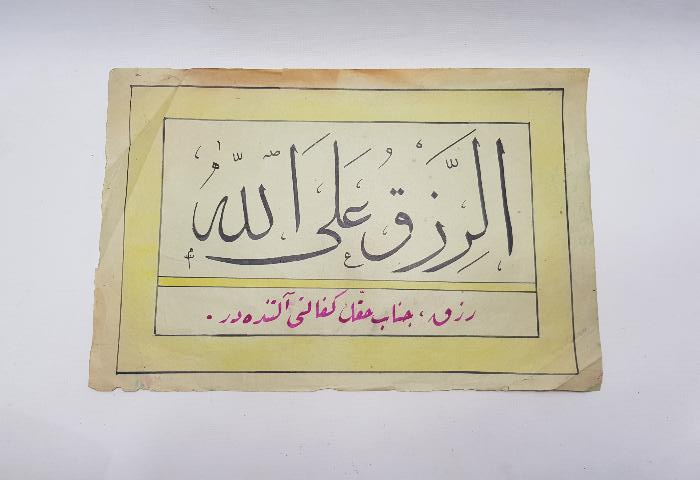 الرِّزْقُ عَلَى اللّٰهِ
رزق، جناب حقك كفالتى آلتنده در.